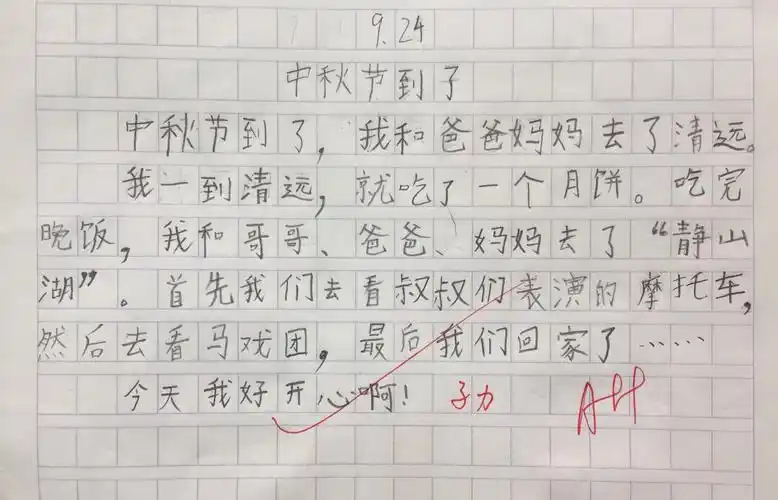 9.24
中秋节到了
中秋节到了，我和爸爸妈妈去了清远。
我一到清远，就吃了一个月饼。吃完
晚饭，我和哥哥、爸爸、妈妈去了“静山
湖”。首先我们去看叔叔们表演的摩托车，
然后去看马戏团，最后我们回家了……
今天我好开心啊！ 子力 A++